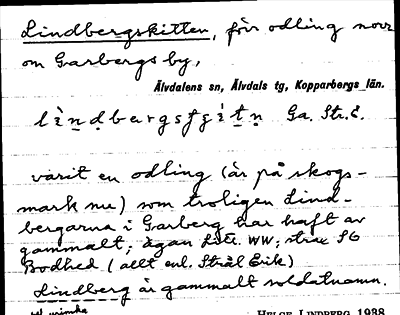 Lindbergskitten, förr odling norr
om Garbergs by,
Älvdalens sn, Älvdals tg, Kopparbergs län.
Ga. Str. E.
varit en odling (är på skogs-
mark nu) som troligen Lind-
bergarna i Garberg har haft av
gammalt; ägan Litt. WW; strax SG
Bodhed (allt enl. Strål Erik)
Lindberg är gammalt soldatnamn.
HELGE LINDBERG 1938